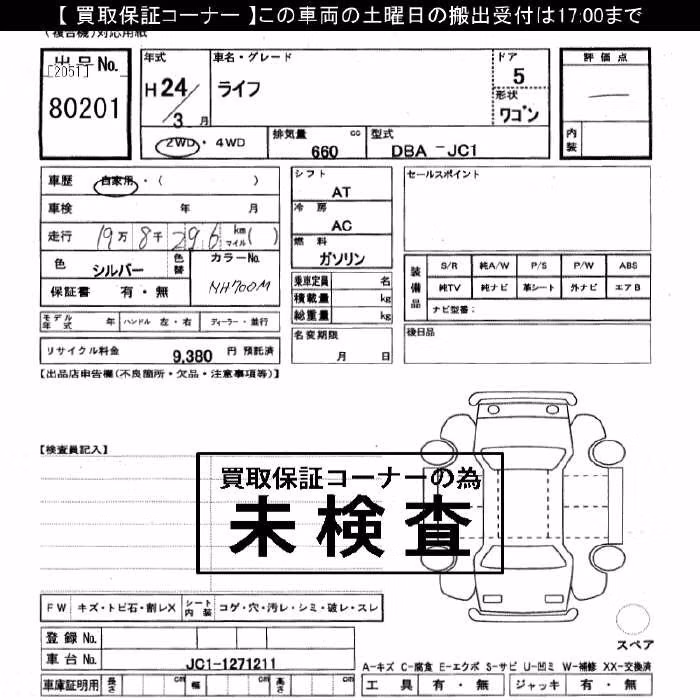 【 買取保証コーナー 】この車両の土曜日の搬出受付は17:00まで
(複合機)対応用紙
出品No.
[2051]
80201
年式
H 24 / 3 月
車名・グレード
ライフ
ドア
5
形状
ワゴン
評価点
内装
2WD ・ 4WD
排気量 cc
660
型式
DBA - JC1
車歴 自家用・( )
車検 年 月
走行 19万 8千 296 km マイル ( )
色 シルバー 色替
カラーNo.
NH700M
保証書 有・無
シフト
AT
冷房
AC
燃料
ガソリン
乗車定員 名
積載量 kg
総重量 kg
セールスポイント
装備品
S/R 純A/W P/S P/W ABS
純TV 純ナビ 革シート 外ナビ エアB
ナビ型番:
モデル年式 年 ハンドル 左・右 ディーラー・並行
名変期限
月 日
後日品
リサイクル料金 9,380 円 預託済
【出品店申告欄(不良箇所・欠品・注意事項等)】
【検査員記入】
買取保証コーナーの為
未検査
FW キズ・トビ石・割レX シート内装 コゲ・穴・汚レ・シミ・破レ・スレ
スペア
登録 No.
車台 No. JC1-1271211
A-キズ C-腐食 E-エクボ S-サビ U-凹ミ W-補修 XX-交換済
車庫証明用 長さ cm 幅 cm 高さ cm
工具 有・無 ジャッキ 有・無